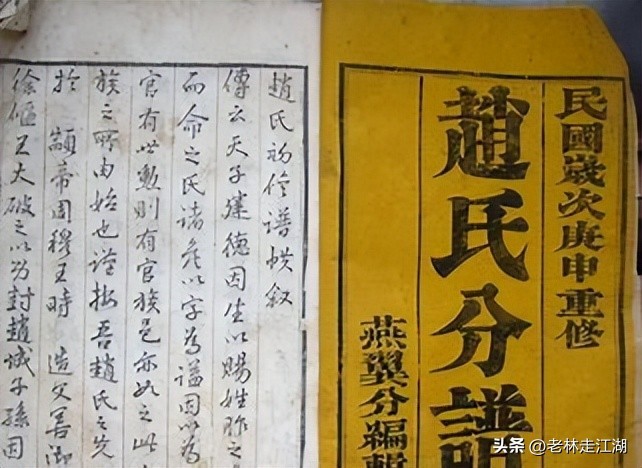 民國歲次庚申重修
趙氏分譜
燕翼分編輯
趙氏初修譜敘
傳云天子建德因生以賜姓胙之
而命之氏諸侯以字為謚因以為
官有世勳則有官族邑亦如之此
族之所由始也謹按吾趙氏之先
於顓帝周穆王時造父善御
徐偃王大破之以功封趙城子孫因
头条 @老林走江湖